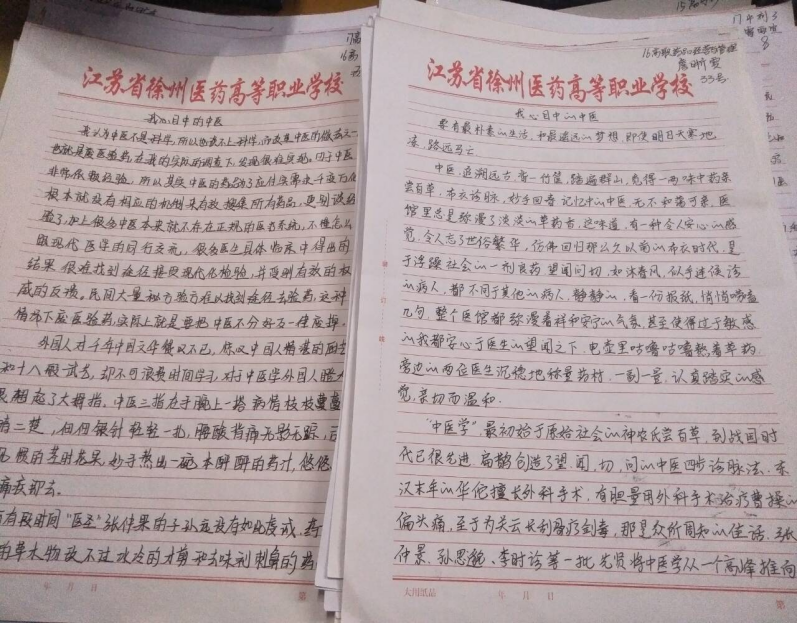 江苏省徐州医药高等职业学校
我心目中的中医
我认为中医不是科学，所以也谈不上科学，而改造中医的做法之一
也就是废医验药，在我的实际的调查下，发现很难实现。由于中医
非常依赖经验，所以其实中医的药
根本就没有相应的机制来有效搜集所有药品，更别谈经
验了，加上很多中医本来就不存在正规的医药系统，不懂怎么
跟现代医学的同行交流，很多医生具体临床中得出的
结果，很难找到途径接受现代化检验，并及时有效的权
威的反馈。民间大量秘方验方在以找到途径去验药，这种
情况下废医验药，实际上就是要把中医不分好歹一律废掉。
外国人对千年中国文华赞叹不已，惊叹中国人精湛的厨艺
和十八般武艺，却不可浪费时间学习，对于中医学外国人瞪大
眼翘起了大拇指，中医三指在手腕上一搭，病情枝枝蔓蔓
清二楚，但问银针轻轻一扎，腰酸背痛无影无踪，
妙手熬出一碗本酽酽的药汁，悠悠
痛衣却去。
有段时间“医圣”张仲景的子孙应没有如此虔诚，药
的草木物没不过水冷的才剪和去味利刺鼻的药
年 月 日
第
16高职药品经营与管理
33号
江苏省徐州医药高等职业学校
我心目中的中医
要有最朴素的生活，和最遥远的梦想，即使明日天寒地
冻，路远马亡
中医，追溯远古，背一竹筐，踏遍群山，觅得一两味中药亲
尝百草，布衣诊脉，妙手回春，记忆中的中医无不和蔼可亲，医
馆里总是弥漫了淡淡的草药香，这味道，有一种令人安心的感
觉，令人忘了世俗繁华，仿佛回归那么久以前的布衣时代，是
于浮躁社会的一剂良药，望闻问切，如沐春风，似乎连候诊
的病人，都不同于其他的病人，静静的，看一份报纸，悄悄唠嗑
几句，整个医馆都弥漫着祥和安宁的气氛，甚至使得过于敏感
的我都安心于医生的望闻之下，电壶里咕噜咕噜熬着草药，
旁边的两位医生沉稳地称量药材，一副一景，认真踏实的感
觉，亲切而温和。
“中医学”最初始于原始社会的神农氏尝百草，到战国时
代已很先进，扁鹊创造了望、闻、切、问的中医四步诊脉法，东
汉末年的华佗擅长外科手术，有胆量用外科手术治疗曹操的
偏头痛，至于为关云长刮骨疗剑毒，那是众所周知的佳话，张
仲景、孙思邈、李时诊等一批先贤将中医学从一个高峰推向
大川纸品
年 月 日
第